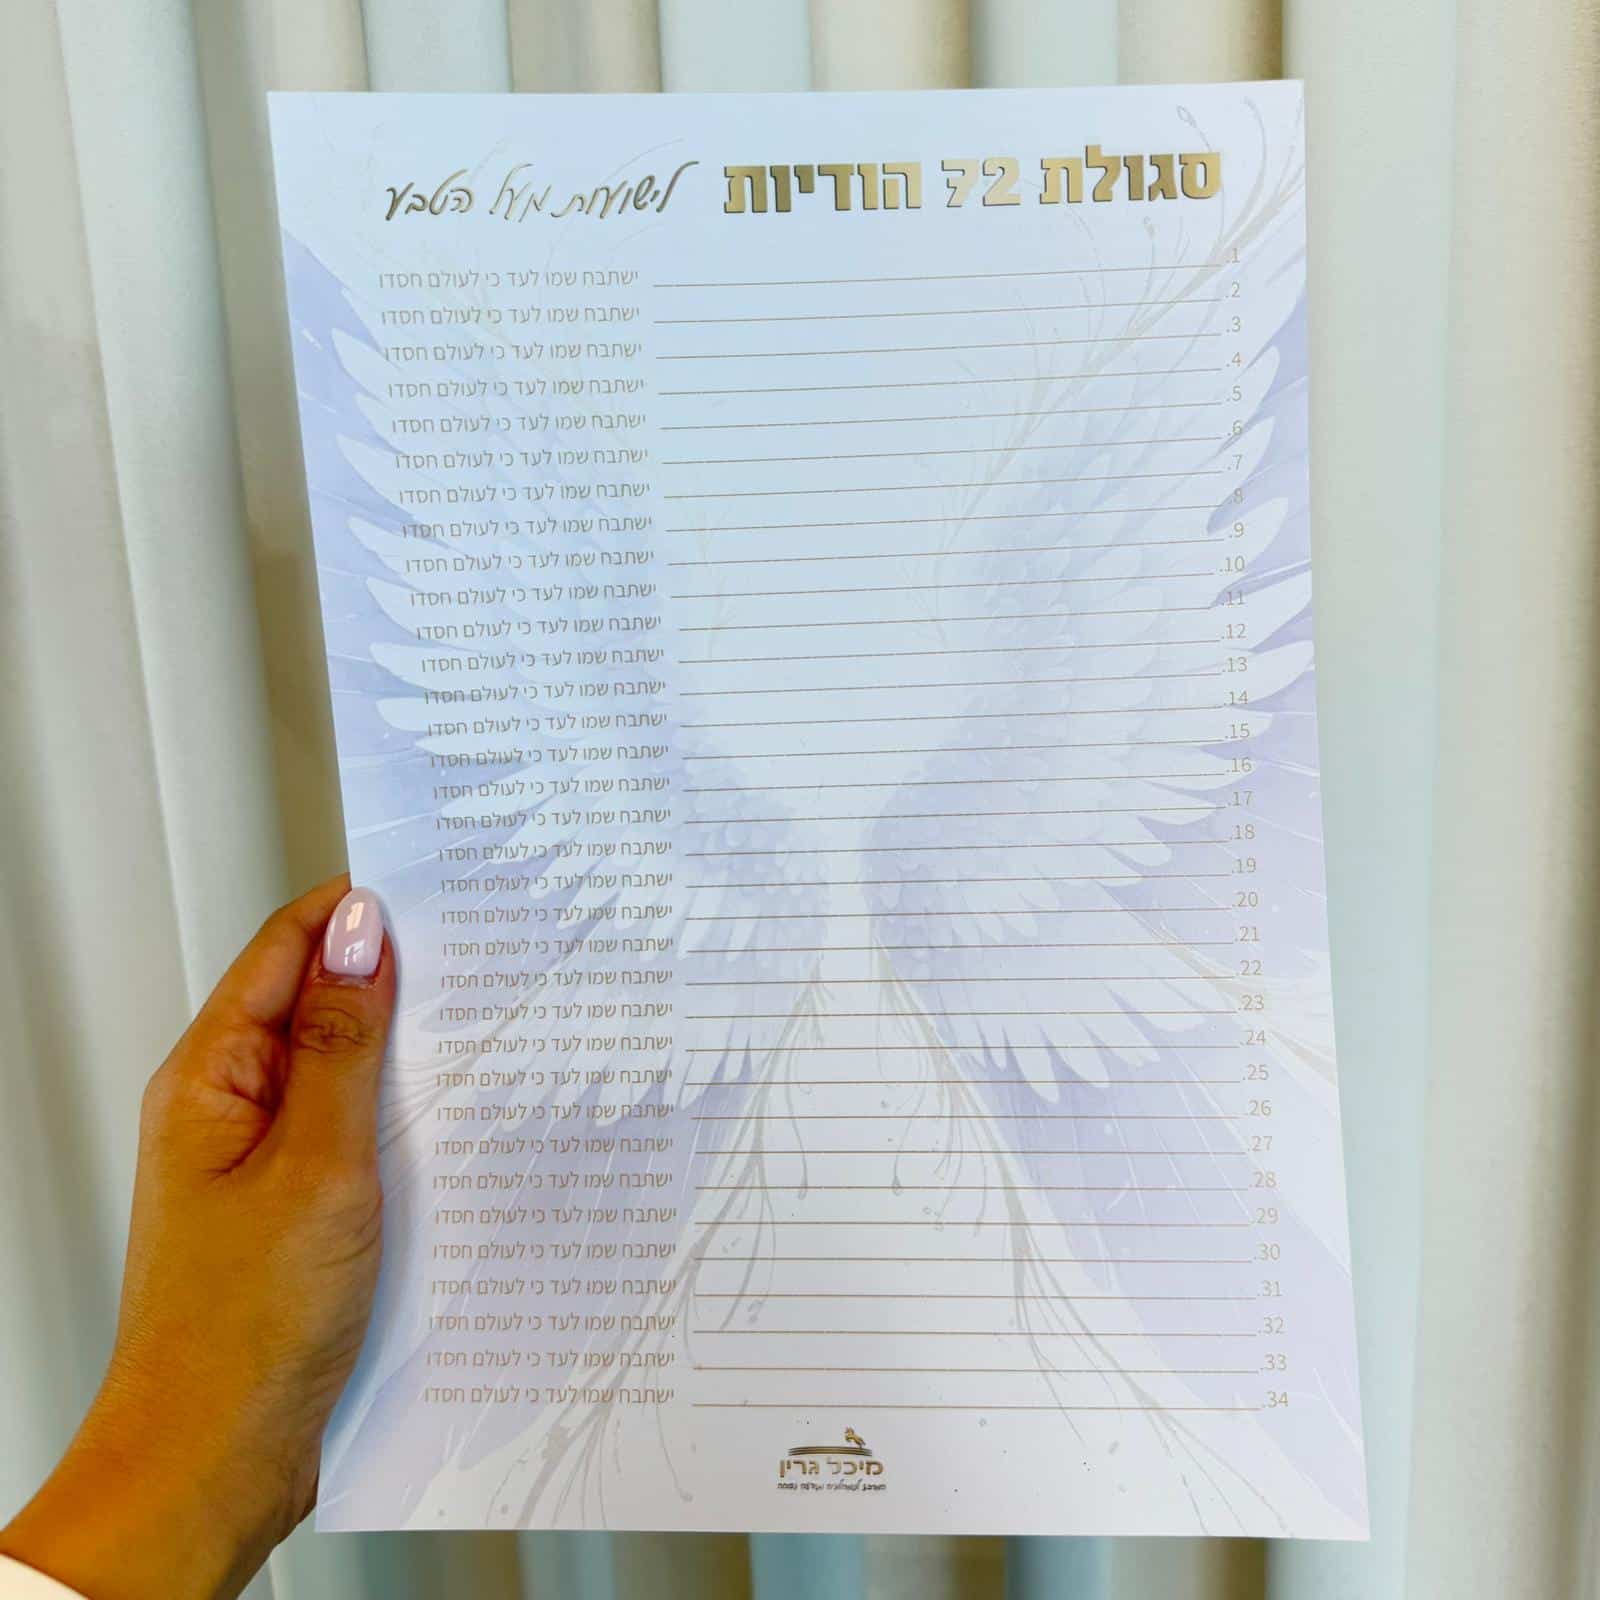 סגולת 72 הודיות לישועות מעל הטבע
1. ישתבח שמו לעד כי לעולם חסדו
2. ישתבח שמו לעד כי לעולם חסדו
3. ישתבח שמו לעד כי לעולם חסדו
4. ישתבח שמו לעד כי לעולם חסדו
5. ישתבח שמו לעד כי לעולם חסדו
6. ישתבח שמו לעד כי לעולם חסדו
7. ישתבח שמו לעד כי לעולם חסדו
8. ישתבח שמו לעד כי לעולם חסדו
9. ישתבח שמו לעד כי לעולם חסדו
10. ישתבח שמו לעד כי לעולם חסדו
11. ישתבח שמו לעד כי לעולם חסדו
12. ישתבח שמו לעד כי לעולם חסדו
13. ישתבח שמו לעד כי לעולם חסדו
14. ישתבח שמו לעד כי לעולם חסדו
15. ישתבח שמו לעד כי לעולם חסדו
16. ישתבח שמו לעד כי לעולם חסדו
17. ישתבח שמו לעד כי לעולם חסדו
18. ישתבח שמו לעד כי לעולם חסדו
19. ישתבח שמו לעד כי לעולם חסדו
20. ישתבח שמו לעד כי לעולם חסדו
21. ישתבח שמו לעד כי לעולם חסדו
22. ישתבח שמו לעד כי לעולם חסדו
23. ישתבח שמו לעד כי לעולם חסדו
24. ישתבח שמו לעד כי לעולם חסדו
25. ישתבח שמו לעד כי לעולם חסדו
26. ישתבח שמו לעד כי לעולם חסדו
27. ישתבח שמו לעד כי לעולם חסדו
28. ישתבח שמו לעד כי לעולם חסדו
29. ישתבח שמו לעד כי לעולם חסדו
30. ישתבח שמו לעד כי לעולם חסדו
31. ישתבח שמו לעד כי לעולם חסדו
32. ישתבח שמו לעד כי לעולם חסדו
33. ישתבח שמו לעד כי לעולם חסדו
34. ישתבח שמו לעד כי לעולם חסדו
מיכל גרין